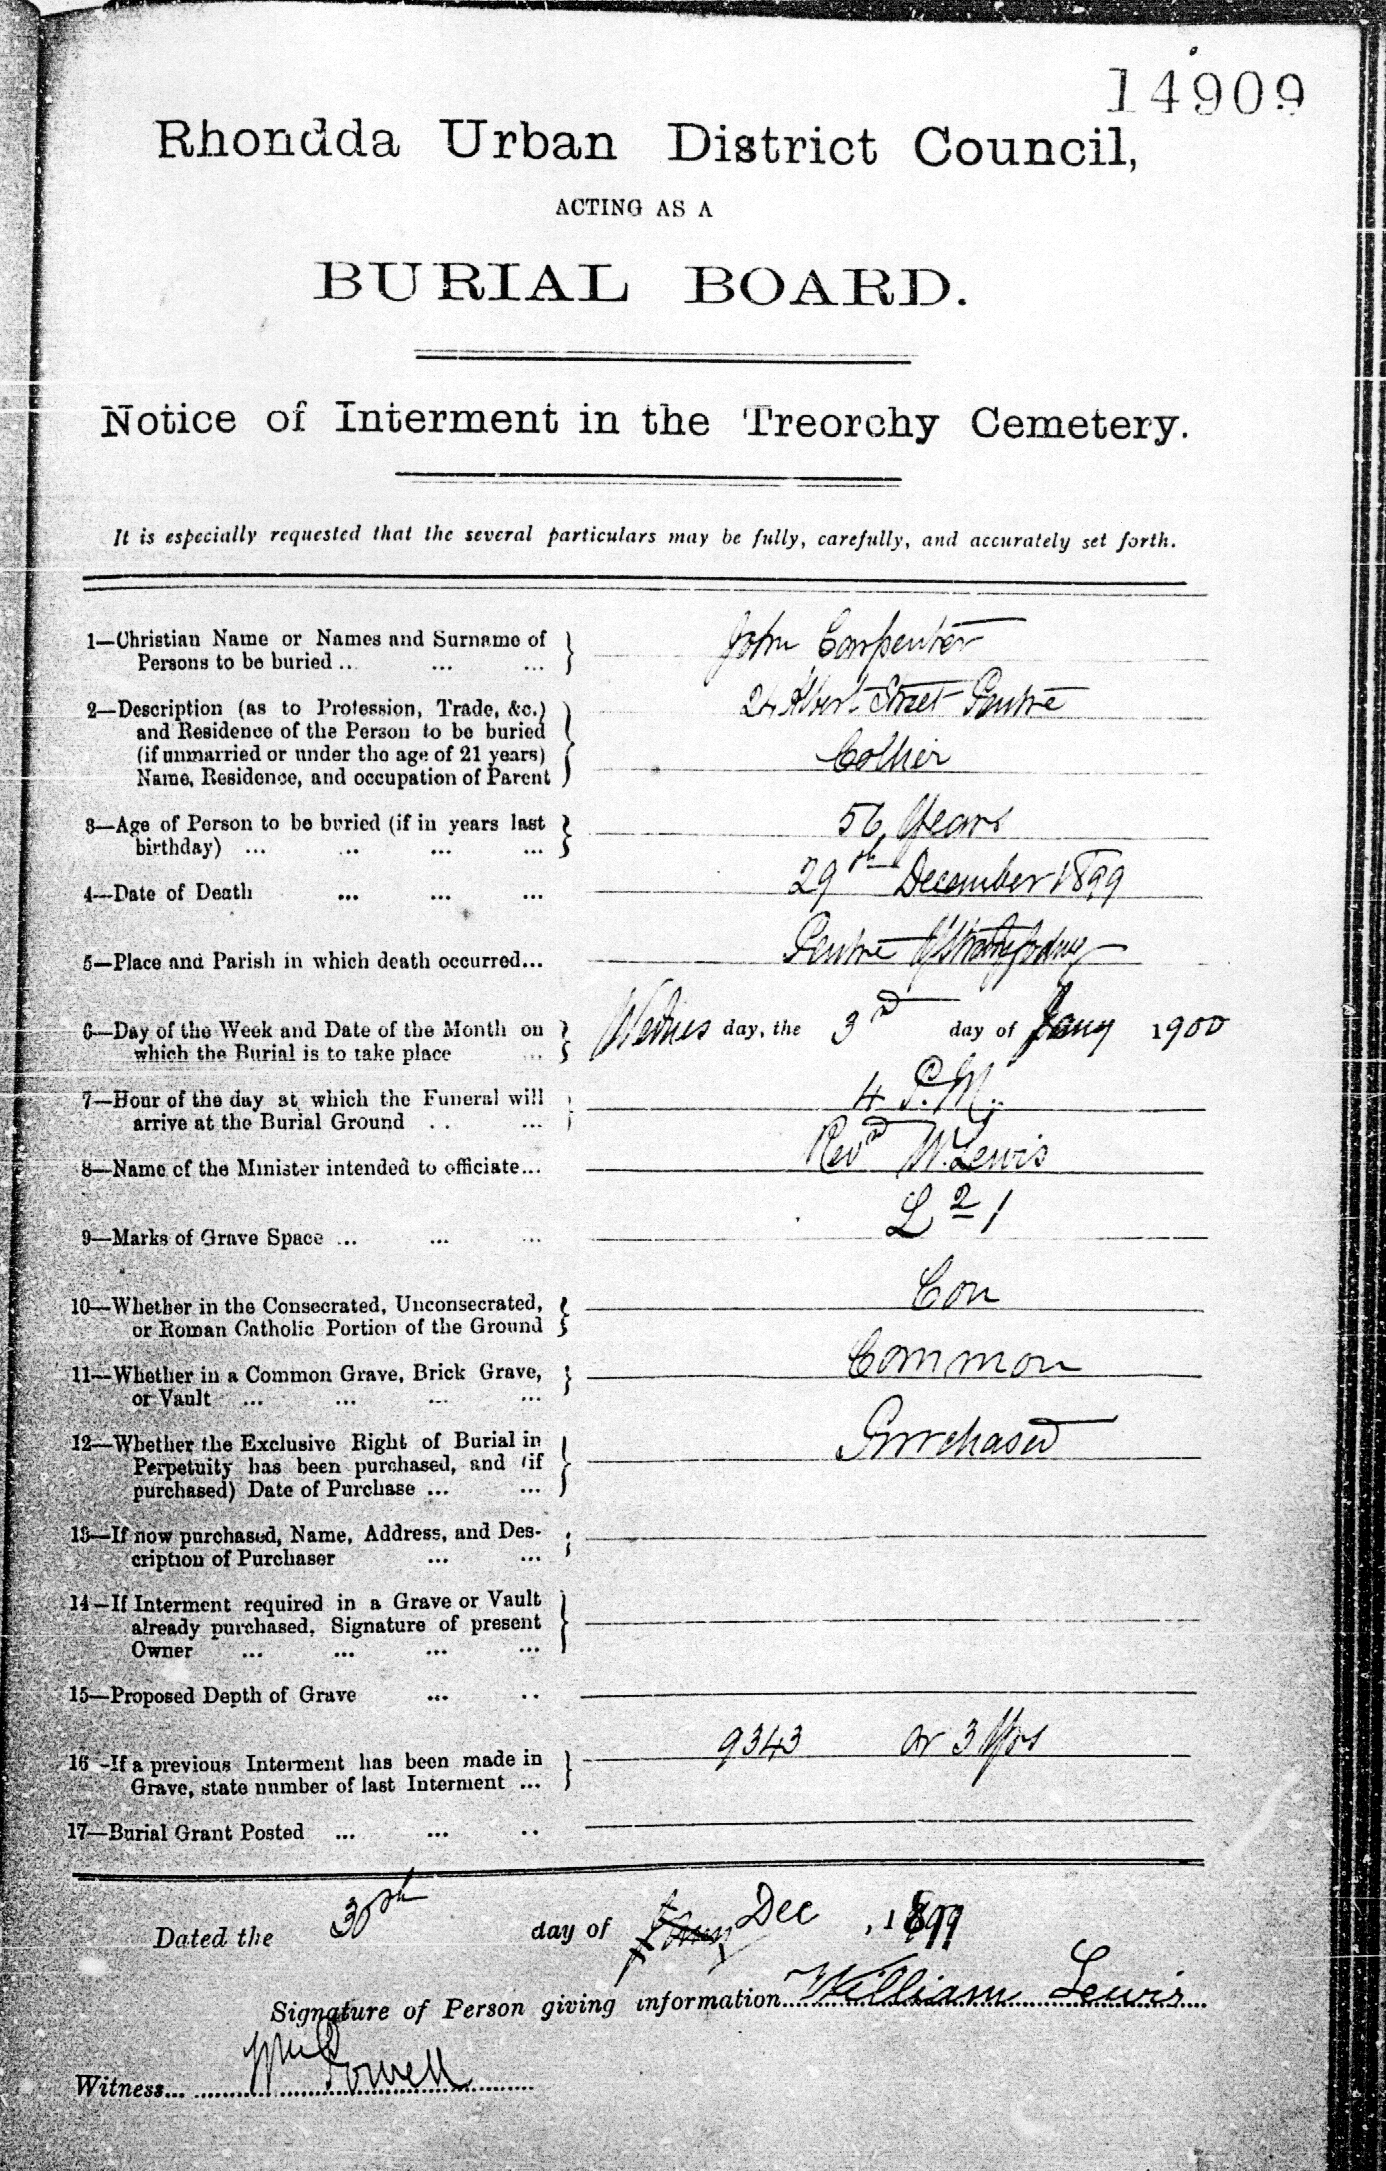 14909
Rhondda Urban District Council,
ACTING AS A
BURIAL BOARD.
Notice of Interment in the Treorchy Cemetery.
It is especially requested that the several particulars may be fully, carefully, and accurately set forth.
1—Christian Name or Names and Surname of
Persons to be buried ... ... ...
John Carpenter
2—Description (as to Profession, Trade, &c.)
and Residence of the Person to be buried
(if unmarried or under the age of 21 years)
Name, Residence, and occupation of Parent
24 Albert Street Pentre
Collier
3—Age of Person to be buried (if in years last
birthday) ... ... ... ...
56 Years
4—Date of Death ... ... ...
29th December 1899
5—Place and Parish in which death occurred...
Pentre Ystradyfodwg
6—Day of the Week and Date of the Month on
which the Burial is to take place ...
Wednes day, the 3rd day of Jany 1900
7—Hour of the day at which the Funeral will
arrive at the Burial Ground .. ...
4 P.M.
8—Name of the Minister intended to officiate...
Revd W. Lewis
9—Marks of Grave Space ... ... ...
L 2 1
10—Whether in the Consecrated, Unconsecrated,
or Roman Catholic Portion of the Ground
Con
11—Whether in a Common Grave, Brick Grave,
or Vault ... ... ... ...
Common
12—Whether the Exclusive Right of Burial in
Perpetuity has been purchased, and (if
purchased) Date of Purchase ... ...
Purchased
13—If now purchased, Name, Address, and Des-
cription of Purchaser ... ...
14—If Interment required in a Grave or Vault
already purchased, Signature of present
Owner ... ... ... ...
15—Proposed Depth of Grave ... ..
16-If a previous Interment has been made in
Grave, state number of last Interment ...
9343 or 3 Yrs
17—Burial Grant Posted ... ... ..
Dated the 30th day of Jany Dec , 1899
Signature of Person giving information William Lewis
Witness... Wm Powell